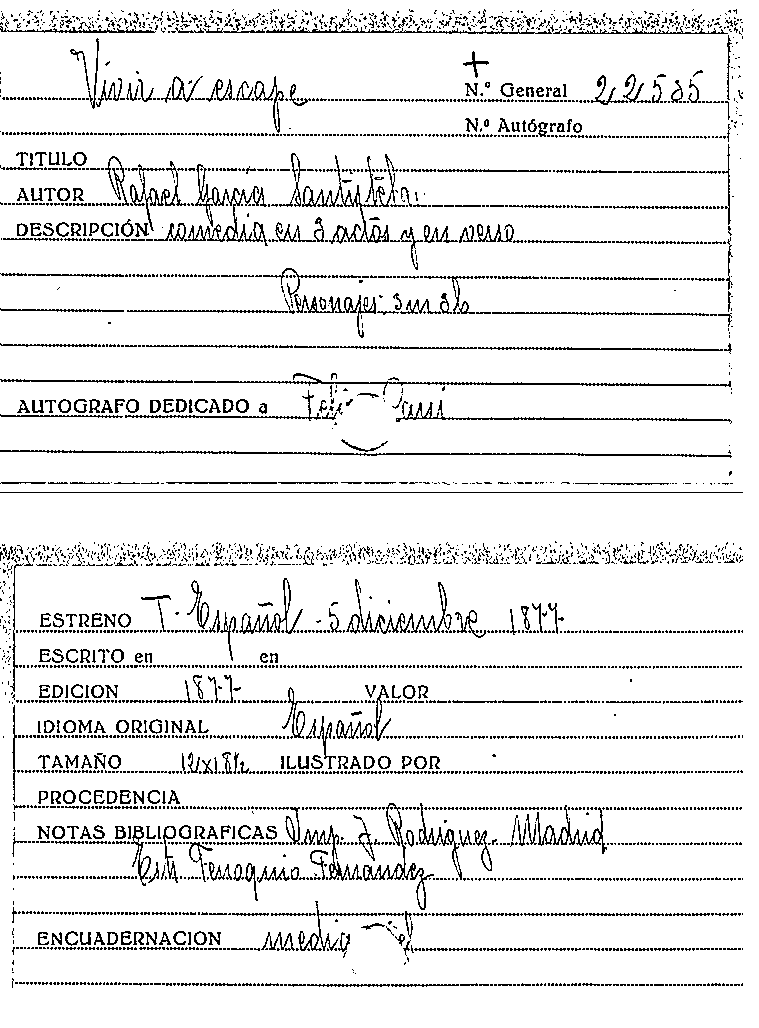 Vivir a escape
N.º General 22535
N.º Autógrafo
TITULO
AUTOR Rafael García Santisteban
DESCRIPCIÓN comedia en 3 actos y en verso
Personajes: 3m 3h
AUTOGRAFO DEDICADO a
ESTRENO T. Español - 5 diciembre 1877
ESCRITO en en
EDICION 1877 VALOR
IDIOMA ORIGINAL Español
TAMAÑO 12x18½ ILUSTRADO POR
PROCEDENCIA
NOTAS BIBLIOGRAFICAS Imp. J. Rodriguez. Madrid
Fernandez
ENCUADERNACION media